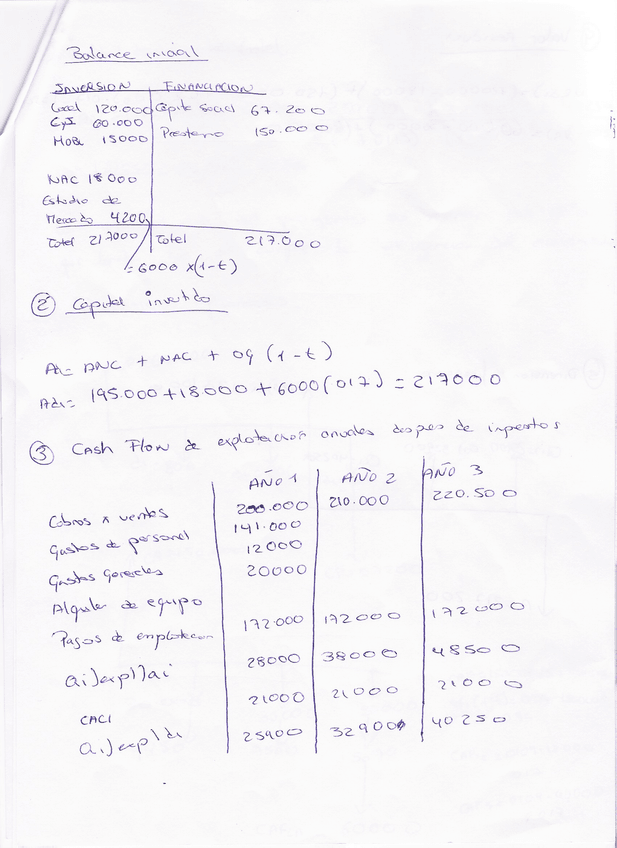 Balance inicial
INVERSION FINANCIACION
Local 120.000 Capital Social 67.200
CyI 60.000
Prestamo 150.000
MOBL 15000
NAC 18000
Estudio de
Mercado 4200
Total 217000 Total 217.000
= 6000 x (1-t)
② Capital invertido
A1 = ANC + NAC + Og (1-t)
Ad1 = 195.000 + 18000 + 6000 (0'7) = 217000
③ Cash Flow de explotacion anuales despues de impuestos
AÑO 1 AÑO 2 AÑO 3
Cobros x ventas 200.000 210.000 220.500
Gastos de personal 141.000
Gastos generales 12000
Alquiler de equipo 20000
Pagos de explotacion 172.000 172000 172000
Qi)expl)ai 28000 38000 48500
CACI 21000 21000 21000
Qi)expl)di 25900 32900 40250